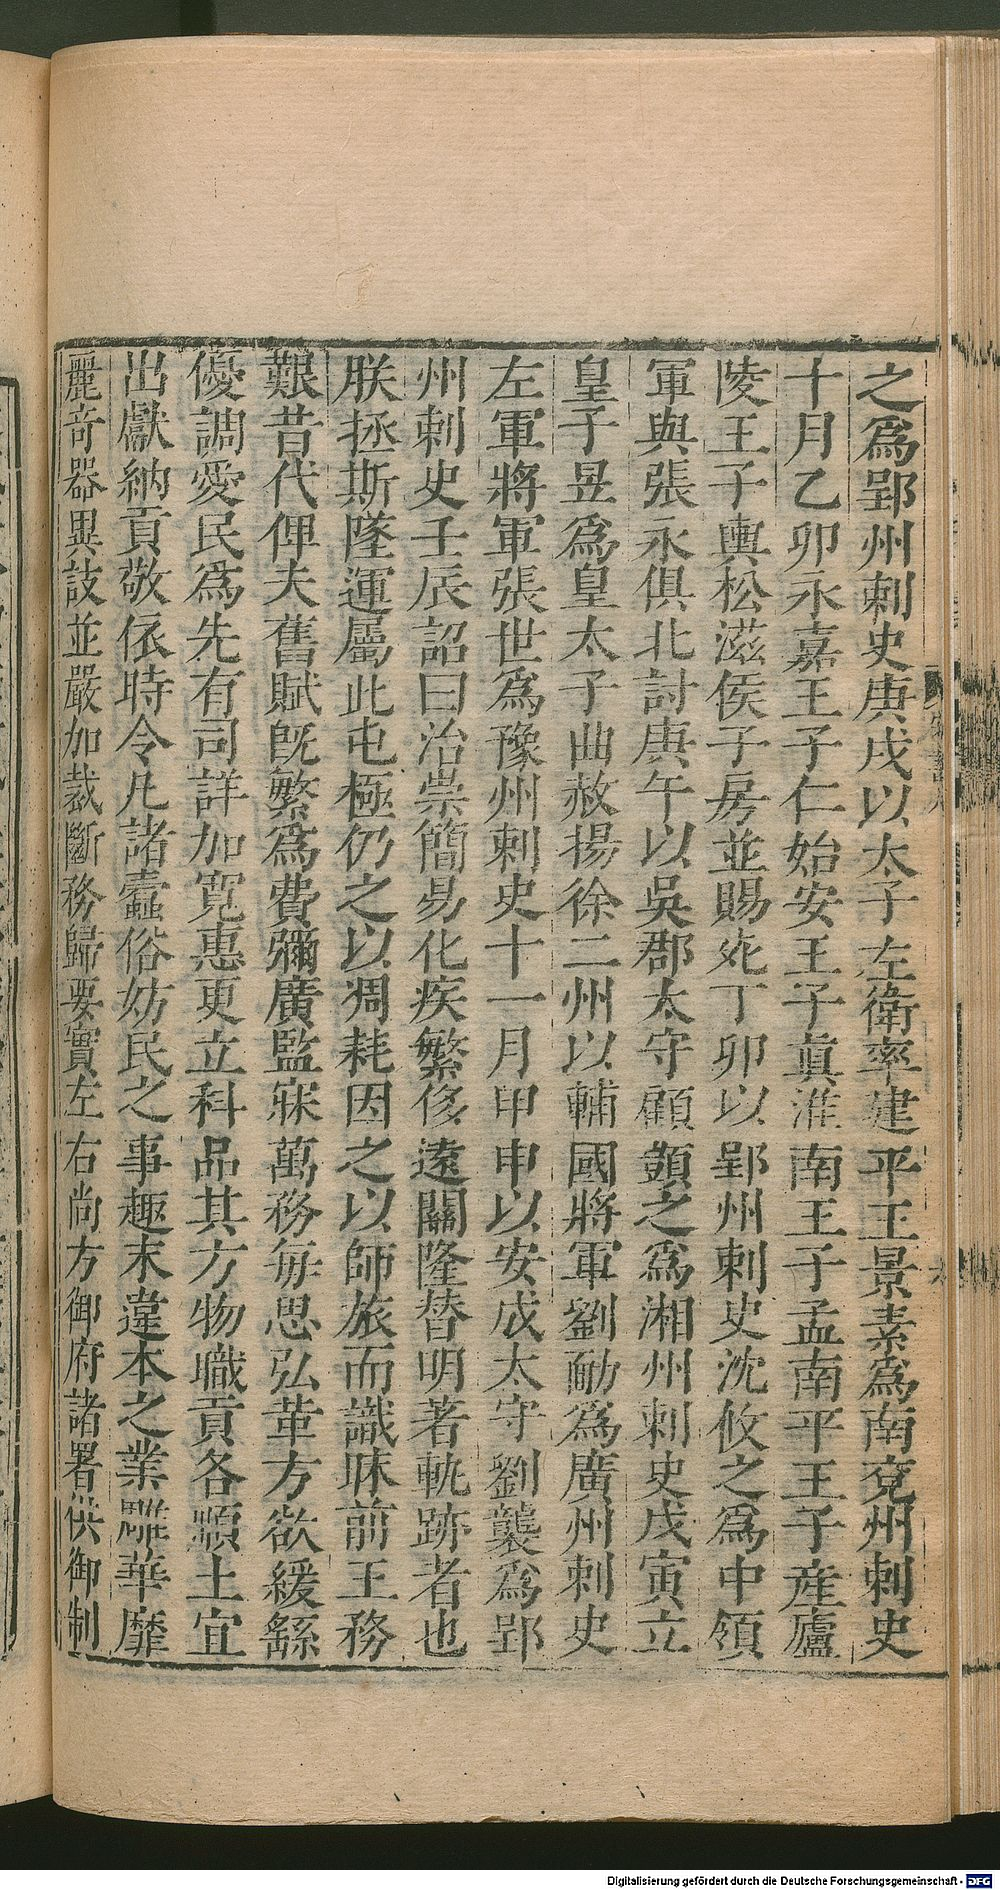 之爲郢州刺史庚戌以太子左衛率建平王景素爲南兖州刺史
十月乙卯永嘉王子仁始安王子眞淮南王子孟南平王子產廬
陵王子輿松滋侯子房並賜死丁卯以郢州刺史沈攸之爲中領
軍與張永俱北討庚午以吳郡太守顧顗之爲湘州刺史戊寅立
皇子昱爲皇太子曲赦揚徐二州以輔國將軍劉勔爲廣州刺史
左軍將軍張世爲豫州刺史十一月甲申以安成太守劉襲爲郢
州刺史壬辰詔曰治崇簡易化疾繁侈遠關隆替明著軌跡者也
朕拯斯墜運屬此屯極仍之以凋耗因之以師旅而識昧前王務
艱昔代俾夫舊賦旣繁爲費彌廣監寐萬務每思弘革方欲緩繇
優調愛民爲先有司詳加寬惠更立科品其方物職貢各順土宜
出獻納貢敬依時令凡諸蠹俗妨民之事趣末違本之業雕華靡
麗奇器異技並嚴加裁斷務歸要實左右尚方御府諸署供御制
Digitalisierung gefördert durch die Deutsche Forschungsgemeinschaft - DFG